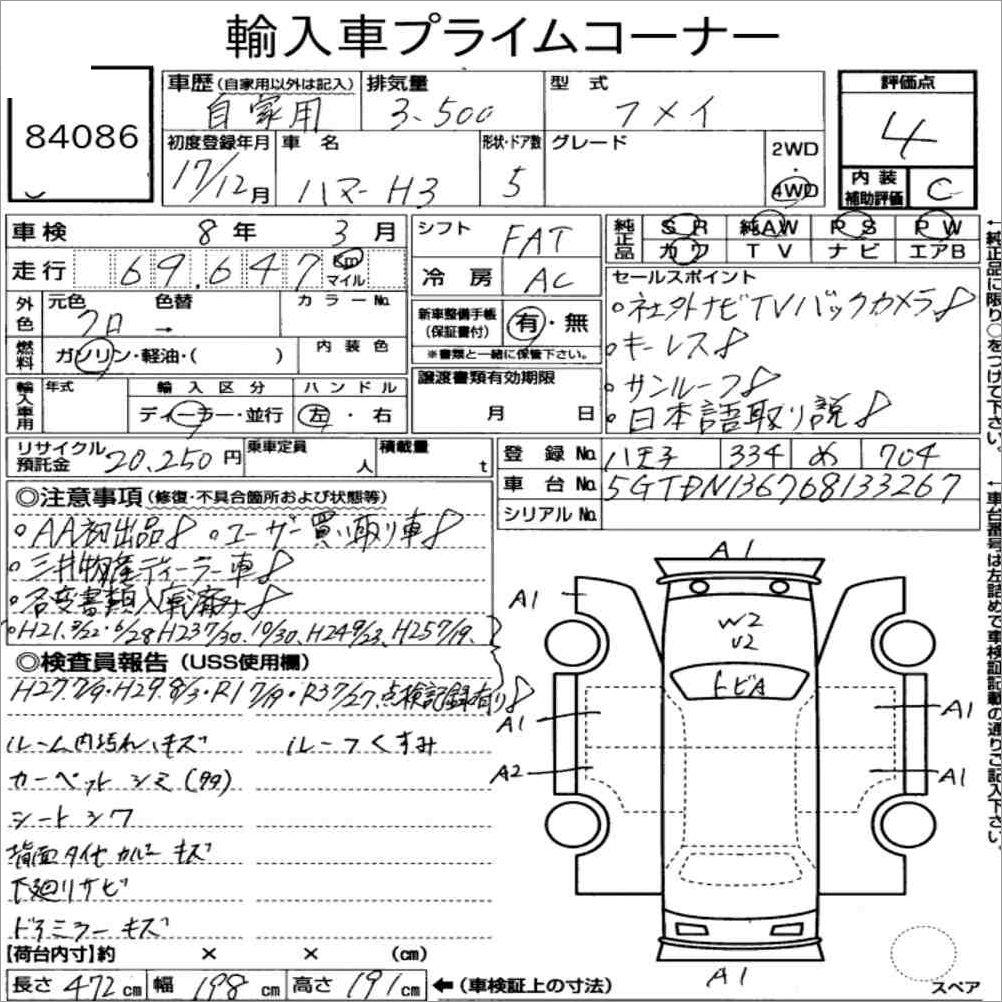 輸入車プライムコーナー
84086
車歴 (自家用以外は記入) 排気量 型式 評価点
自家用 3.500 フメイ 4
初度登録年月 車名 形状・ドア数 グレード 2WD・4WD
17/12月 ハマーH3 5
内装補助評価 C
車検 8年 3月 シフト FAT
純正品 SR 純AW PS PW
カワ TV ナビ エアB
走行 69.647 Km マイル 冷房 AC
セールスポイント
外色 元色 色替 カラーNo.
クロ →
新車整備手帳(保証書付) 有・無
※書類と一緒に保管下さい。
。社外ナビTVバックカメラ
。キーレス
。サンルーフ
。日本語取り説
燃料 ガソリン・軽油・( ) 内装色
輸入車用 年式 輸入区分 ハンドル
ディーラー・並行 左・右
譲渡書類有効期限
月 日
リサイクル預託金 20.250円 乗車定員 人 積載量 t
登録No. 八王子 334 め 704
車台No. 5GTDN136768133267
シリアルNo.
←純正品に限り○をつけて下さい。
←車台番号は左詰めで車検証記載の通りご記入下さい。
◎注意事項(修復・不具合箇所および状態等)
。AA初出品 。ユーザー買い取り車
。三井物産ディーラー車
。各変書類入氣済み
。H21.3/22・6/28 H23 7/30. 10/30. H24 9/23. H25 7/19.
◎検査員報告(USS使用欄)
H27.7/9・H29.8/3・R1 7/19・R3 7/27.点検記録有り
ルーム内汚れ、キズ ルーフくすみ
カーペット シミ
シート シワ
背面タイヤカバー キズ
下廻りサビ
ドアミラー キズ
A1
A1
W2
U2
トビA
A1
A1
A2
A1
A1
スペア
【荷台内寸】約 × × (cm)
長さ 472cm 幅 198cm 高さ 191cm ←(車検証上の寸法)